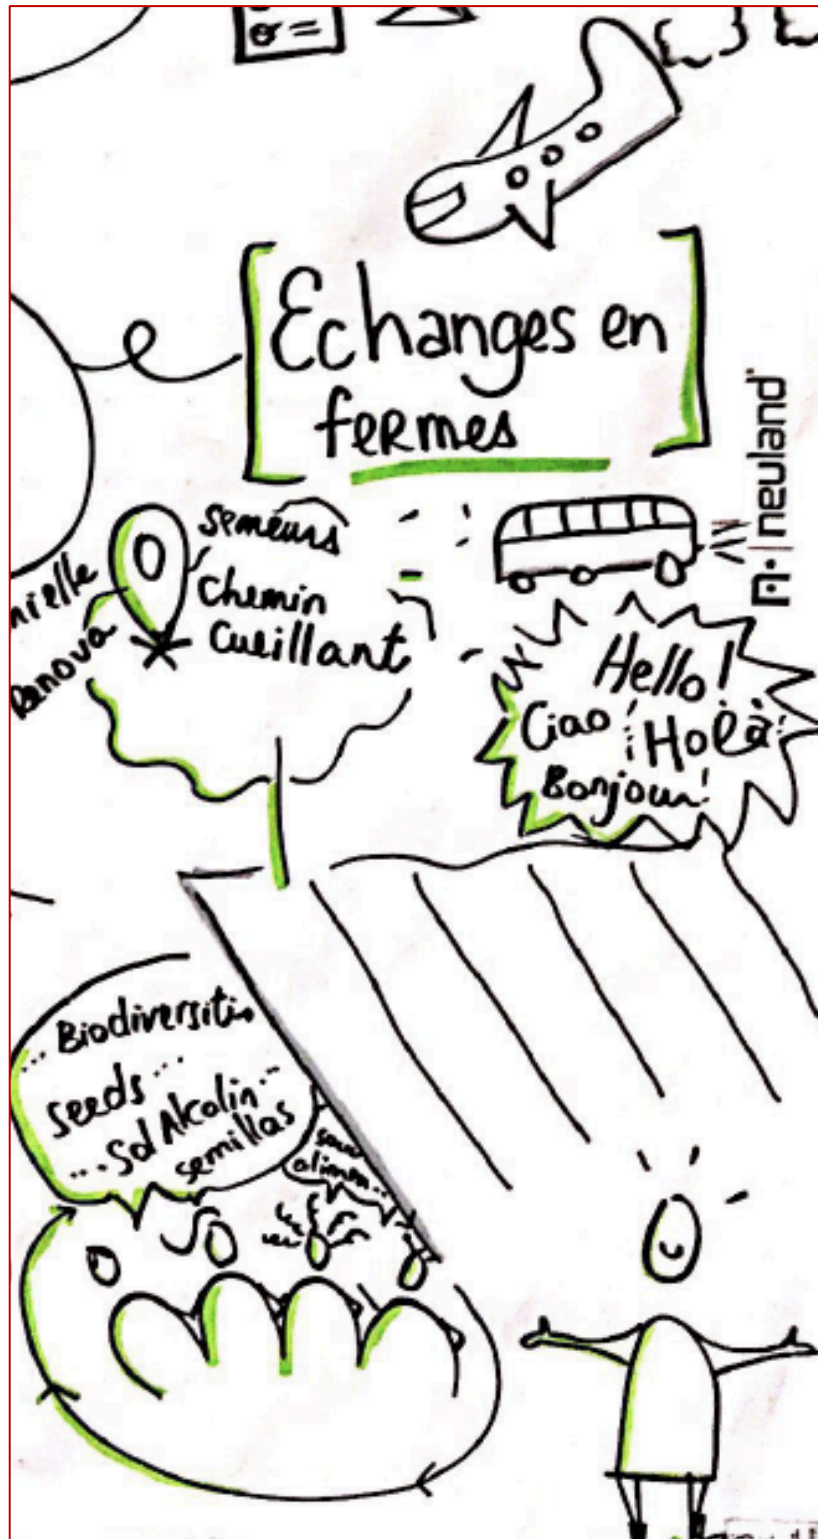 Echanges en
fermes
neuland
semeurs
Chemin
Cueillant
Hello!
Ciao !
¡Holà!
Bonjour!
... Biodiversit
seeds ...
... Sol Alcalin ...
semillas
alimen...